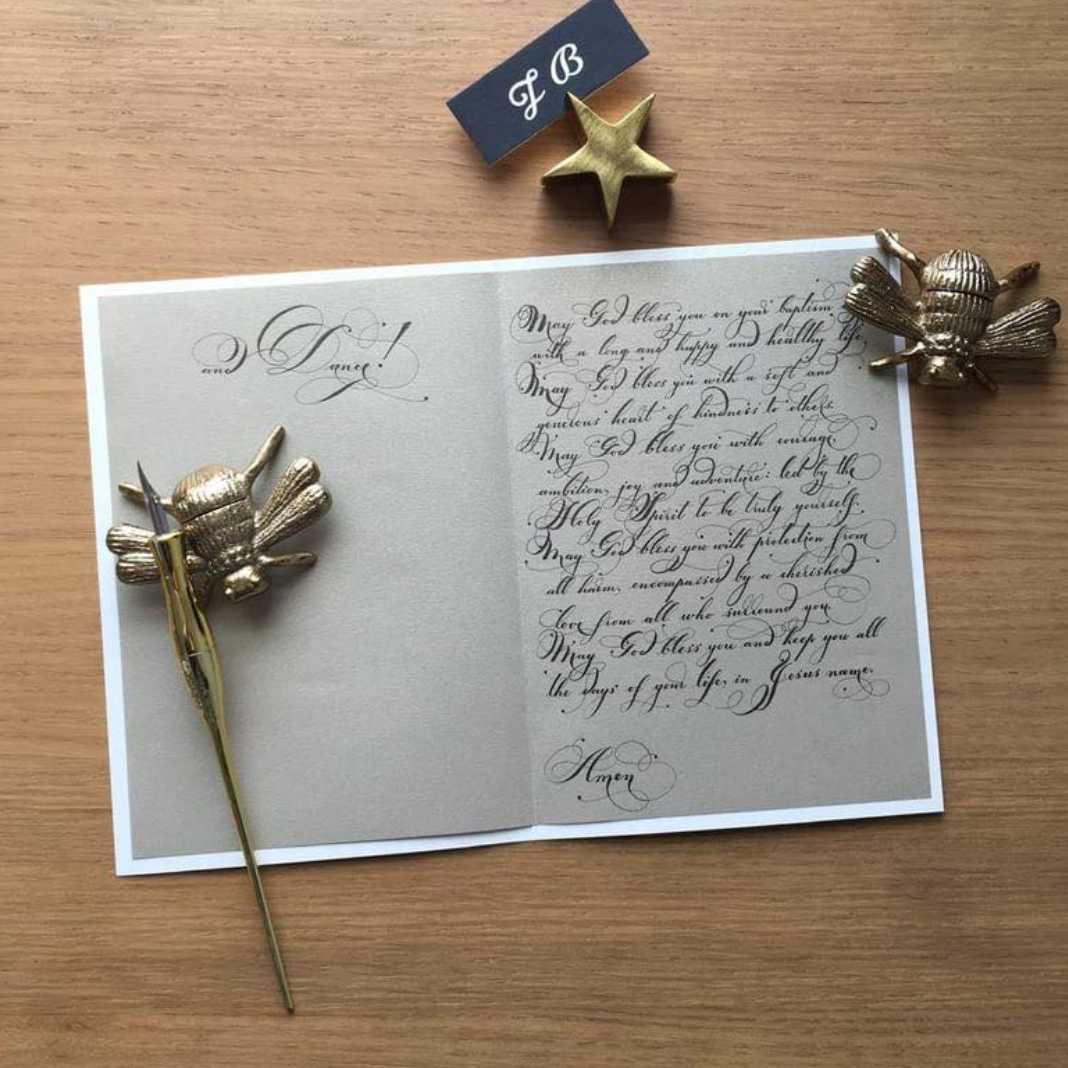 J B
and Dance!
May God bless you on your baptism
with a long and happy and healthy life.
May God bless you with a soft and
generous heart of kindness to others.
May God bless you with courage,
ambition, joy and adventure: led by the
Holy Spirit to be truly yourself.
May God bless you with protection from
all harm, encompassed by a cherished
love from all who surround you
May God bless you and keep you all
the days of your life, in Jesus name.
Amen